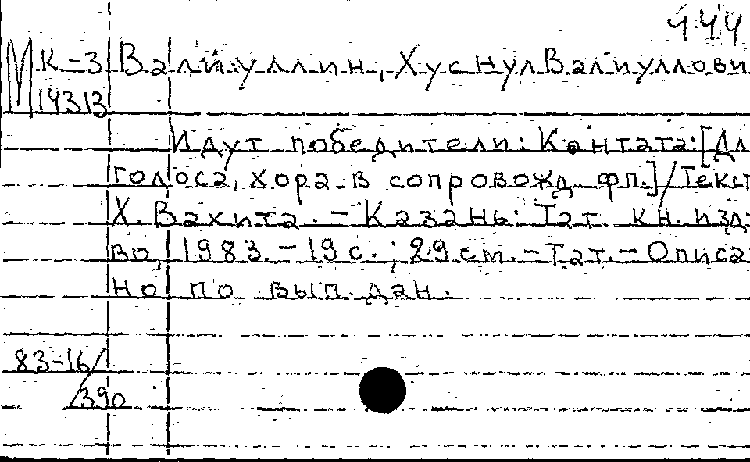 444
М К-3 Валиуллин, Хуснул Валиуллови
14313
Идут победители: Кантата: [Дл
голоса, хора в сопровожд. фп.] / Текст
Х. Вахита. - Казань: Тат. кн. изд-
во, 1983. - 19 с.; 29 см. - Тат. - Описа
но по вып. дан.
83-16/
/390